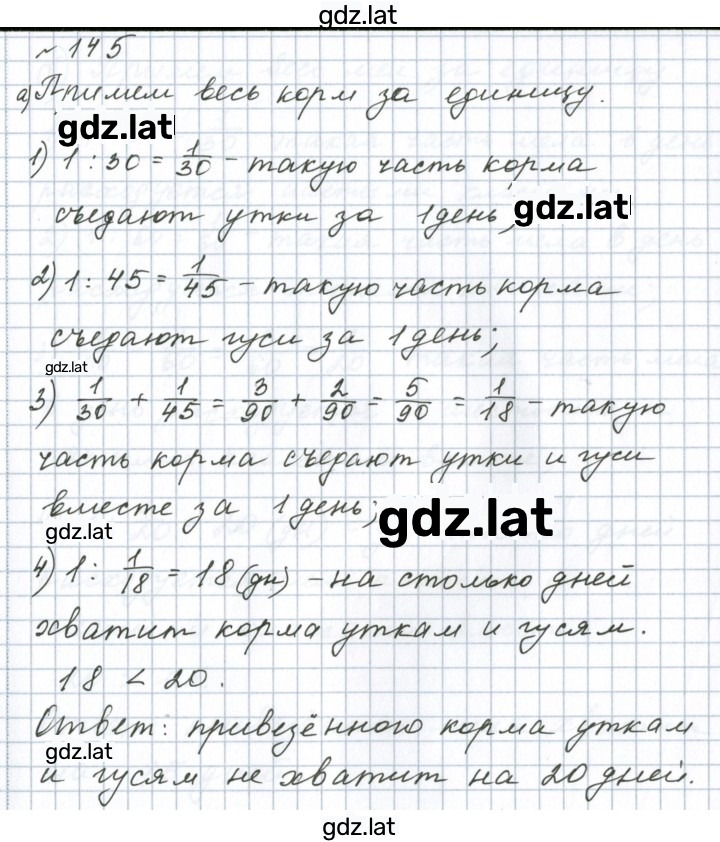 gdz.lat
~ 145
а) Примем весь корм за единицу.
gdz.lat
1) 1 : 30 = 1/30 - такую часть корма
съедают утки за 1 день;
gdz.lat
2) 1 : 45 = 1/45 - такую часть корма
съедают гуси за 1 день;
gdz.lat
3) 1/30 + 1/45 = 3/90 + 2/90 = 5/90 = 1/18 - такую
часть корма съедают утки и гуси
вместе за 1 день;
gdz.lat
gdz.lat
4) 1 : 1/18 = 18 (дн) - на столько дней
хватит корма уткам и гусям.
18 < 20.
Ответ: привезённого корма уткам
gdz.lat
и гусям не хватит на 20 дней.
gdz.lat